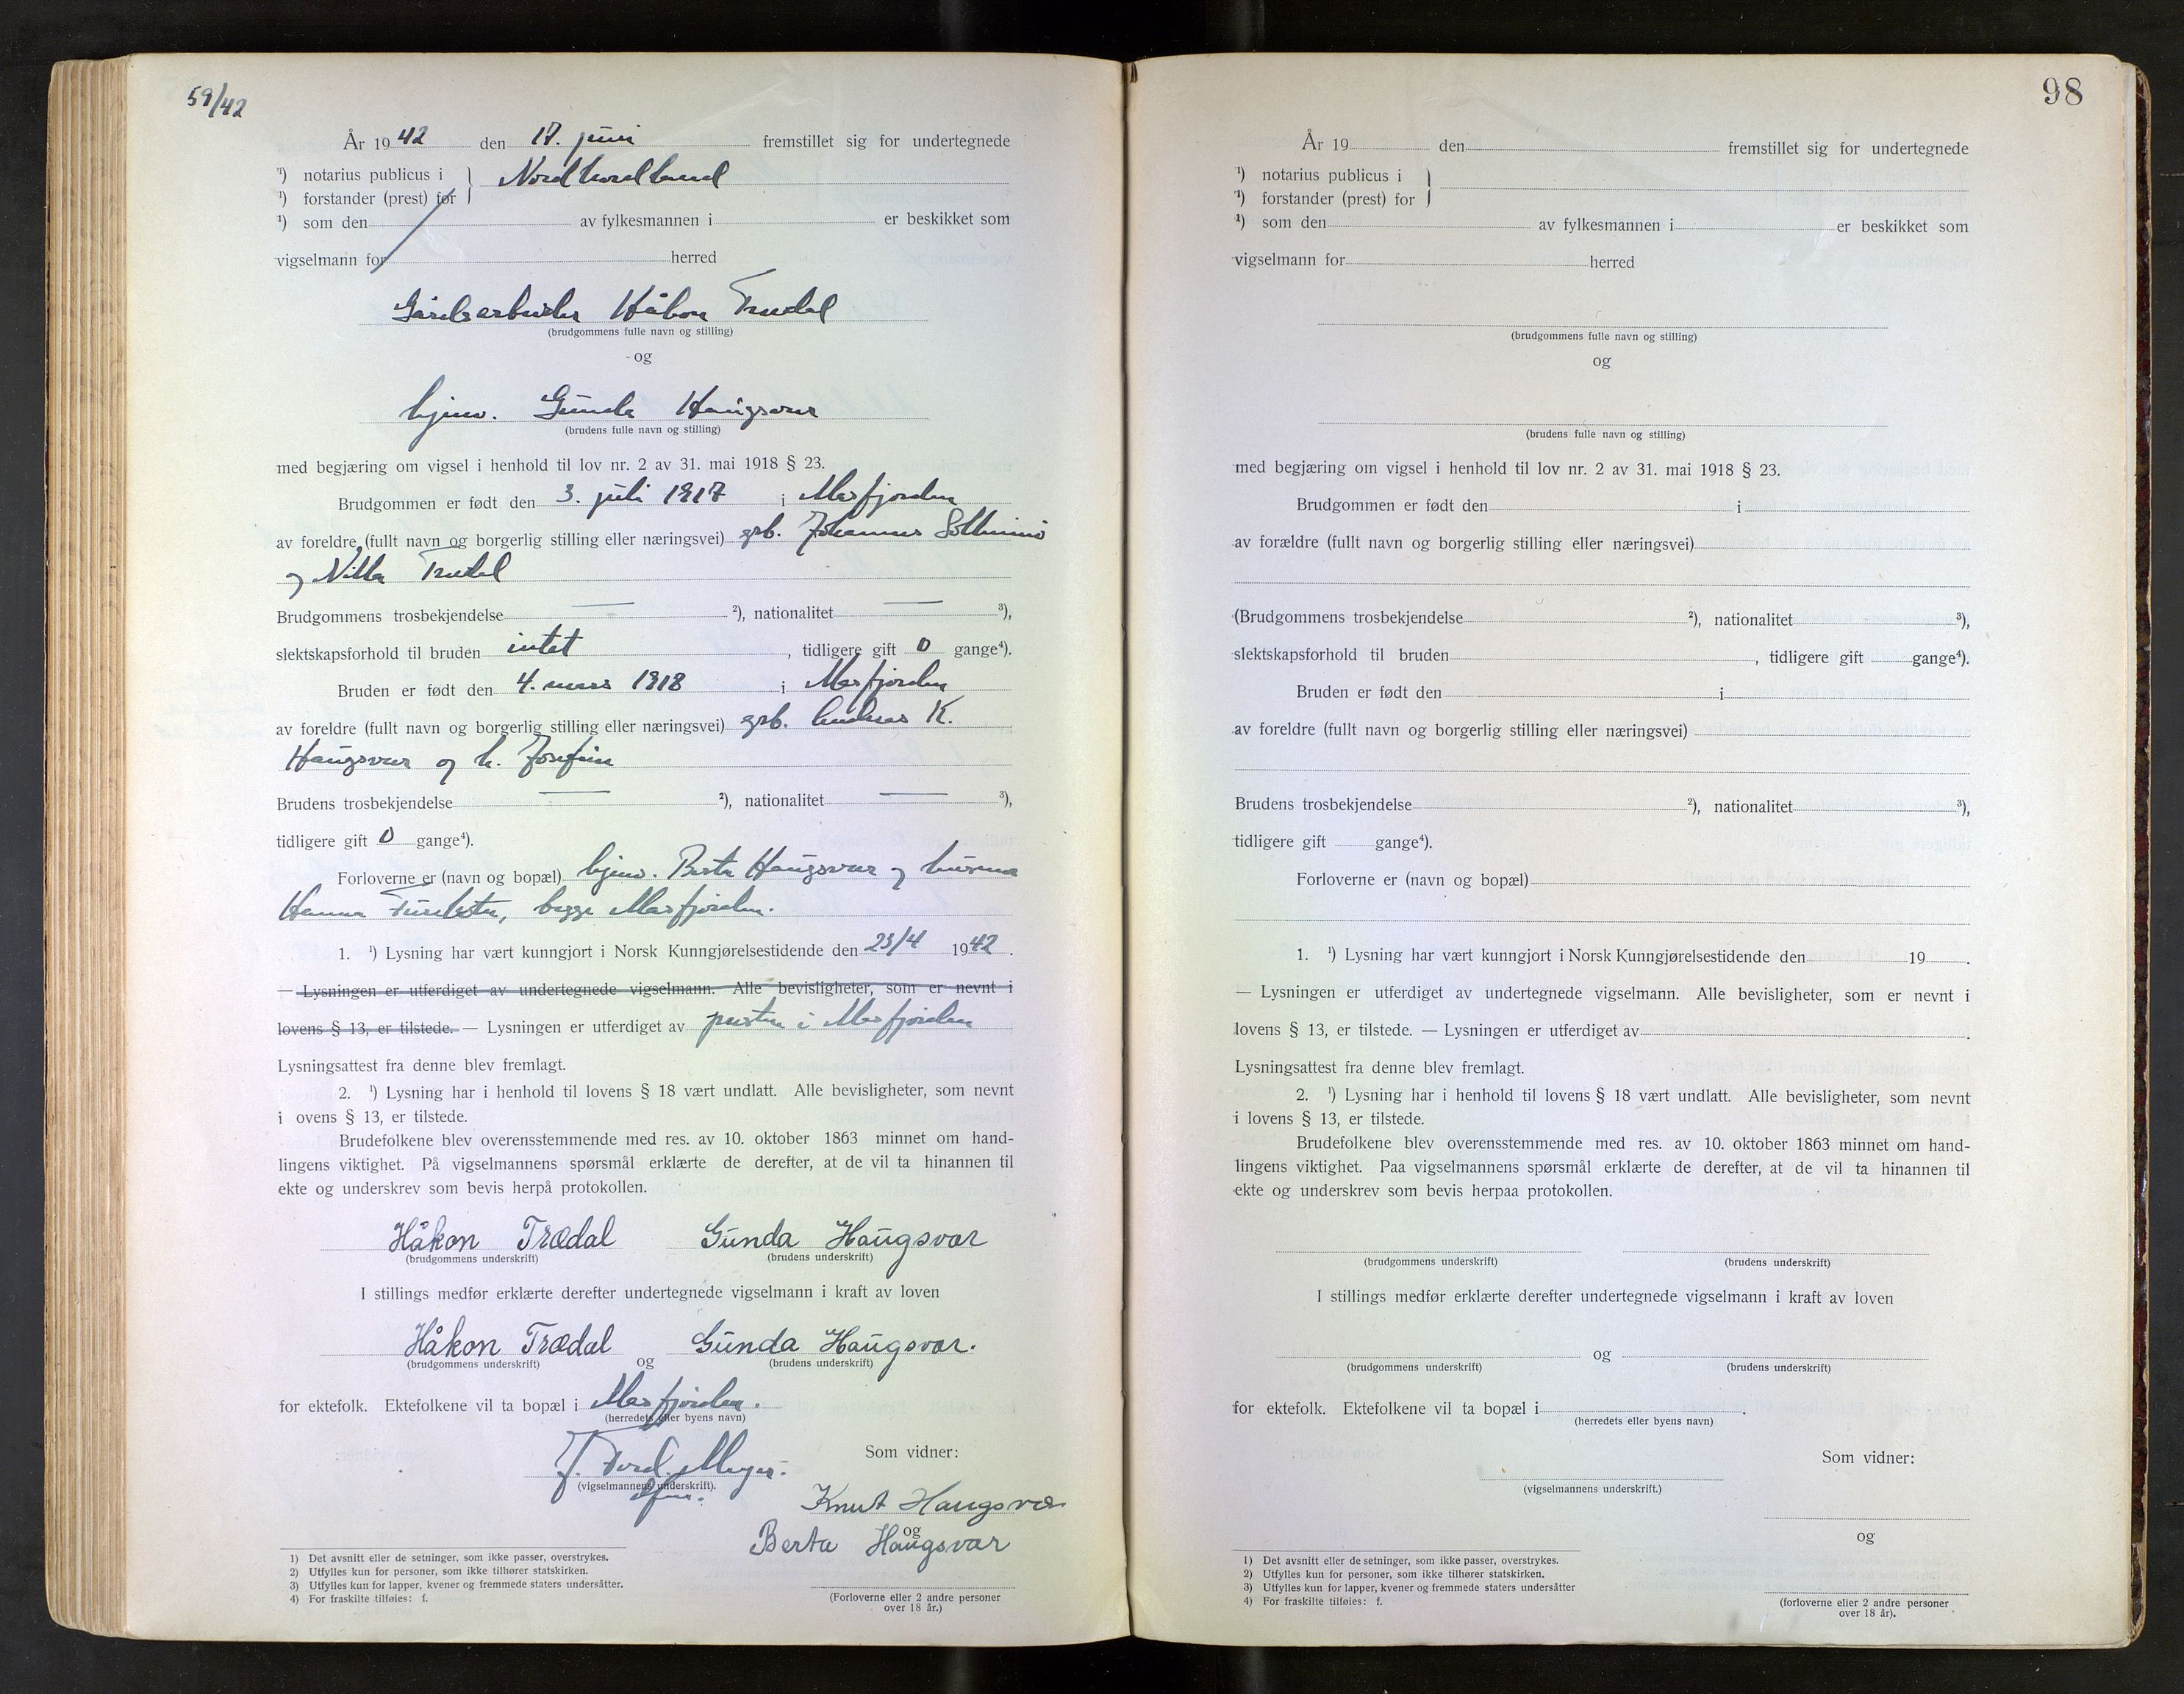 59/42
År 1942 den 17. juni fremstillet sig for undertegnede
¹) notarius publicus i } Nordhordland
¹) forstander (prest) for
¹) som den av fylkesmannen i er beskikket som
vigselmann for herred
Gårdsarbeider Håkon Trædal
(brudgommens fulle navn og stilling)
- og
hjemv. Gunda Haugsvær
(brudens fulle navn og stilling)
med begjæring om vigsel i henhold til lov nr. 2 av 31. mai 1918 § 23.
Brudgommen er født den 3. juli 1917 i Masfjorden
av foreldre (fullt navn og borgerlig stilling eller næringsvei) grb. Johannes
og Trædal
Brudgommens trosbekjendelse — ²), nationalitet — ³),
slektskapsforhold til bruden intet, tidligere gift 0 gange⁴).
Bruden er født den 4. mars 1918 i Masfjorden
av foreldre (fullt navn og borgerlig stilling eller næringsvei) grb. Andreas K.
Haugsvær og h. Josefine
Brudens trosbekjendelse — ²), nationalitet — ³),
tidligere gift 0 gange⁴).
Forloverne er (navn og bopæl) hjemv. Berta Haugsvær og husmor
Hanna begge Masfjorden.
1. ¹) Lysning har vært kunngjort i Norsk Kunngjørelsestidende den 23/4 1942.
— Lysningen er utferdiget av undertegnede vigselmann. Alle bevisligheter, som er nevnt i
lovens § 13, er tilstede. — Lysningen er utferdiget av presten i Masfjorden
Lysningsattest fra denne blev fremlagt.
2. ¹) Lysning har i henhold til lovens § 18 vært undlatt. Alle bevisligheter, som nevnt
i ovens § 13, er tilstede.
Brudefolkene blev overensstemmende med res. av 10. oktober 1863 minnet om hand-
lingens viktighet. På vigselmannens spørsmål erklærte de derefter, at de vil ta hinannen til
ekte og underskrev som bevis herpå protokollen.
Håkon Trædal Gunda Haugsvær
(brudgommens underskrift) (brudens underskrift)
I stillings medfør erklærte derefter undertegnede vigselmann i kraft av loven
Håkon Trædal og Gunda Haugsvær.
(brudgommens underskrift) (brudens underskrift)
for ektefolk. Ektefolkene vil ta bopæl i Masfjorden.
(herredets eller byens navn)
Som vidner:
(vigselmannens underskrift).
Knut Haugsvær
og
Berta Haugsvær
1) Det avsnitt eller de setninger, som ikke passer, overstrykes.
2) Utfylles kun for personer, som ikke tilhører statskirken.
3) Utfylles kun for lapper, kvener og fremmede staters undersåtter.
4) For fraskilte tilføies: f.
(Forloverne eller 2 andre personer
over 18 år.)
98
År 19 den fremstillet sig for undertegnede
¹) notarius publicus i }
¹) forstander (prest) for
¹) som den av fylkesmannen i er beskikket som
vigselmann for herred
(brudgommens fulle navn og stilling)
og
(brudens fulle navn og stilling)
med begjæring om vigsel i henhold til lov nr. 2 av 31. mai 1918 § 23.
Brudgommen er født den i
av forældre (fullt navn og borgerlig stilling eller næringsvei)
(Brudgommens trosbekjendelse ²), nationalitet ³),
slektskapsforhold til bruden , tidligere gift gange⁴).
Bruden er født den i
av foreldre (fullt navn og borgerlig stilling eller næringsvei)
Brudens trosbekjendelse ²), nationalitet ³),
tidligere gift gange⁴).
Forloverne er (navn og bopæl)
1. ¹) Lysning har vært kunngjort i Norsk Kunngjørelsestidende den 19 .
— Lysningen er utferdiget av undertegnede vigselmann. Alle bevisligheter, som er nevnt i
lovens § 13, er tilstede. — Lysningen er utferdiget av .
Lysningsattest fra denne blev fremlagt.
2. ¹) Lysning har i henhold til lovens § 18 vært undlatt. Alle bevisligheter, som nevnt
i lovens § 13, er tilstede.
Brudefolkene blev overensstemmende med res. av 10. oktober 1863 minnet om hand-
lingens viktighet. Paa vigselmannens spørsmål erklærte de derefter, at de vil ta hinannen til
ekte og underskrev som bevis herpaa protokollen.
(brudgommens underskrift) (brudens underskrift)
I stillings medfør erklærte derefter undertegnede vigselmann i kraft av loven
og
(brudgommens underskrift) (brudens underskrift)
for ektefolk. Ektefolkene vil ta bopæl i .
(herredets eller byens navn)
Som vidner:
(vigselmannens underskrift.)
og
1) Det avsnitt eller de setninger, som ikke passer, overstrykes.
2) Utfylles kun for personer, som ikke tilhører statskirken.
3) Utfylles kun for lapper, kvener og fremmede staters undersåtter
4) For fraskilte tilføies: f.
(forloverne eller 2 andre personer
over 18 år).